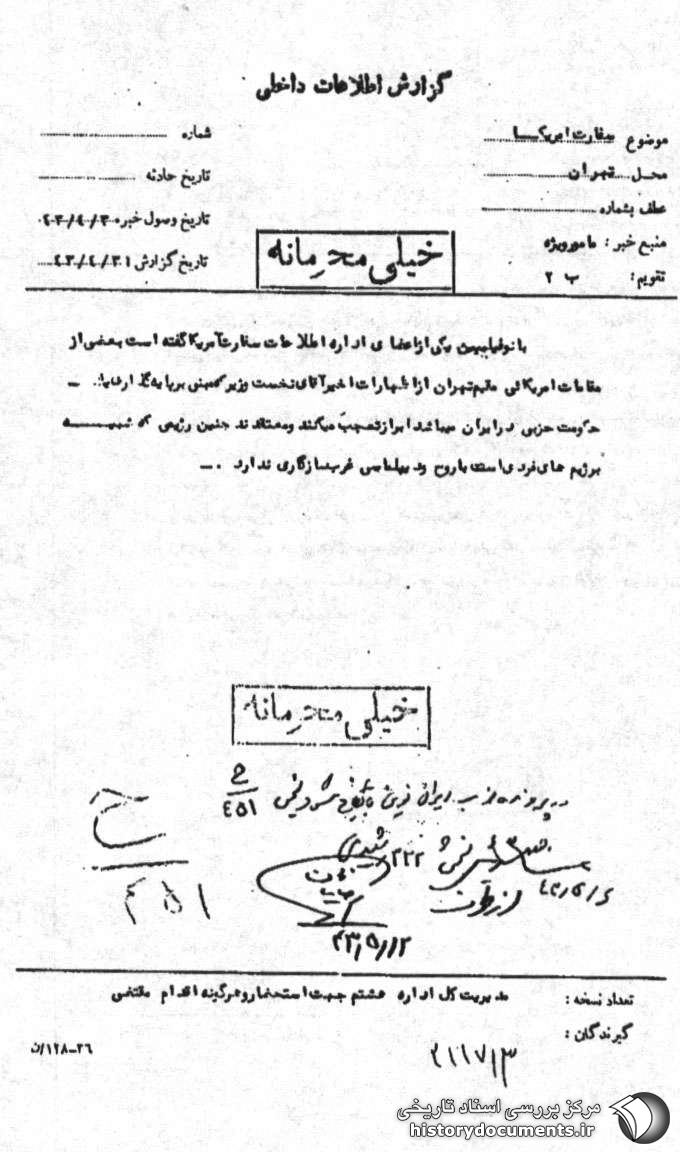 گزارش اطلاعات داخلی
موضوع سفارت امریکا
شماره
محل تهران
تاریخ حادثه
عطف بشماره
تاریخ وصول خبر ۴۳/۴/۳۰
منبع خبر : مامور ویژه
تاریخ گزارش ۴۳/۴/۳۱
تقویم : ب ۲
خیلی محرمانه
بانو فیلیپین یکی از اعضای اداره اطلاعات سفارت آمریکا گفته است بعضی از
مقامات امریکائی مقیم تهران از اظهارات اخیر آقای نخست وزیر که مبنی بر پایه گذاری
حکومت حزبی در ایران میباشد ابراز تعجب میکنند و معتقدند چنین رژیمی که شبیه
برژیم های فردی است با روح و دیپلماسی غرب سازگاری ندارد .
خیلی محرمانه
در پرونده حزب ایران نوین
ح
۴۵۱
ح
۴۵۱
۲۲۲
۴۳/۵/۱۲
تعداد نسخه :
مدیریت کل اداره هشتم جهت استحضار و هرگونه اقدام مقتضی
گیرندگان :
۲۶-۱۲۸/ن
۲۱۱۷/۳
مرکز بررسی اسناد تاریخی
historydocuments.ir